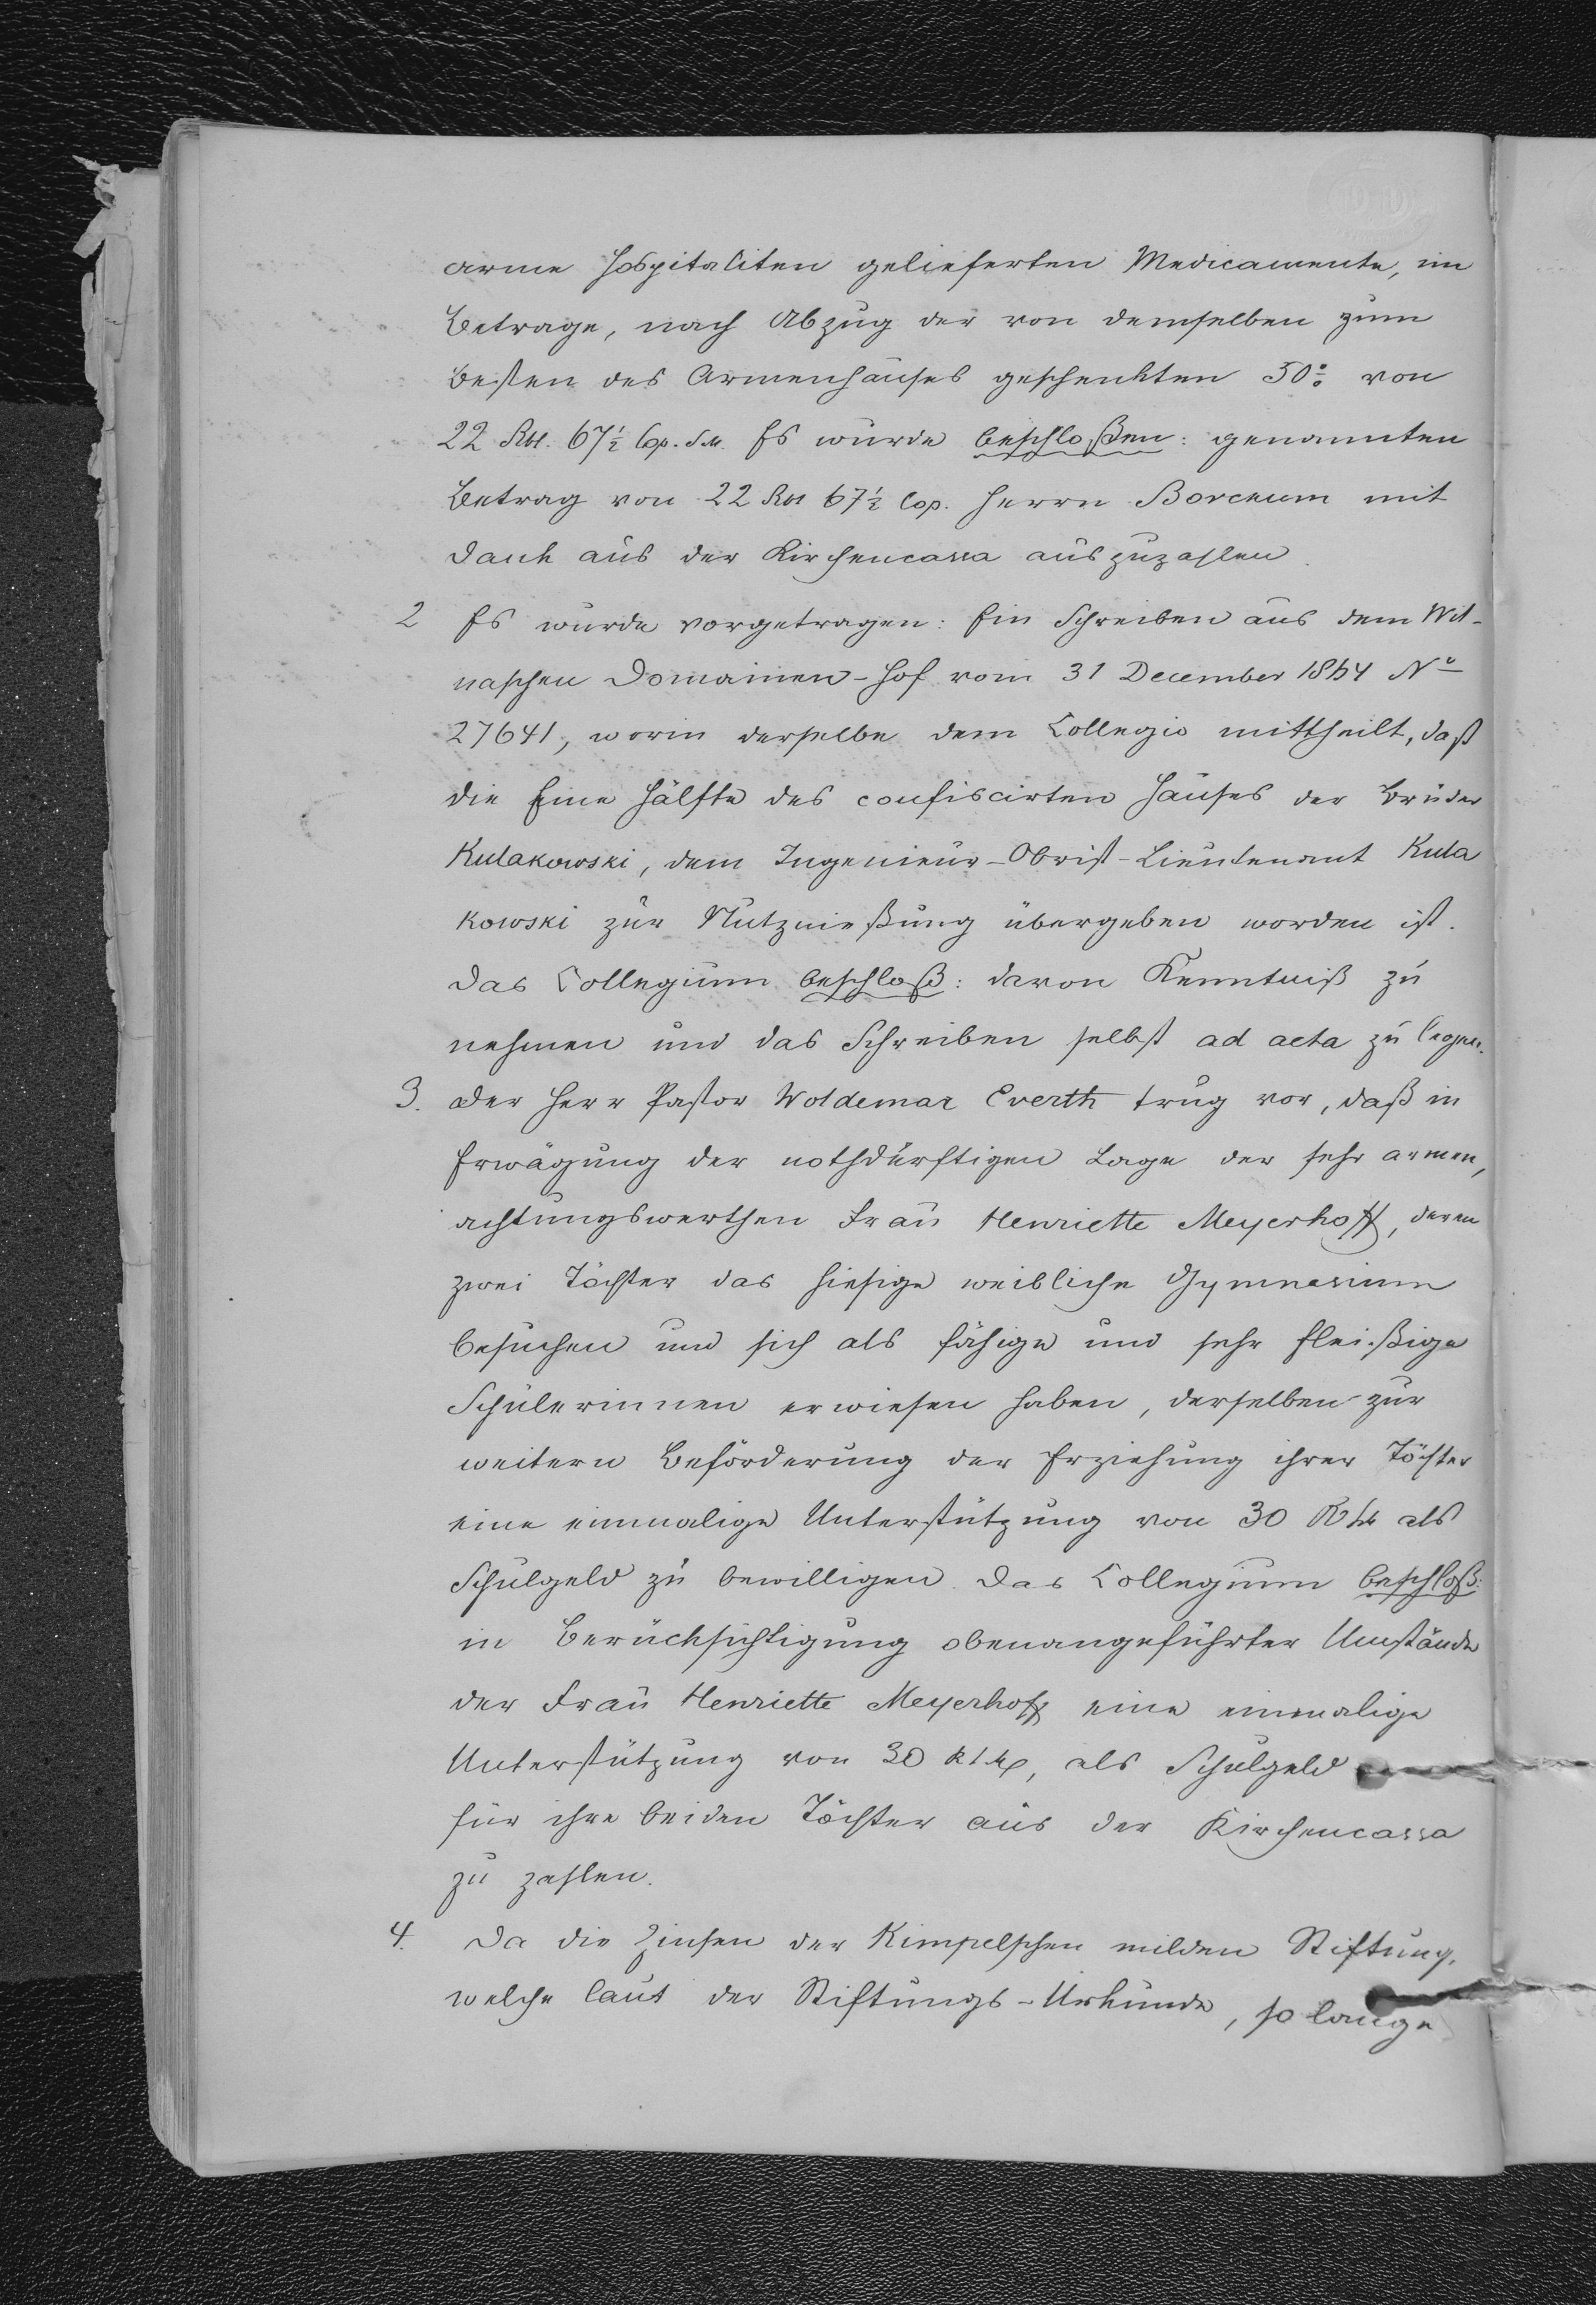 arme Hospitaliten gelieferten Medicamente, im
Betrage, nach Abzug der von demselben zum
Besten des Armenhauses geschenkten 50% von
22 Rbl. 67½ Cop. S.M. Es wurde beschloßen: genannten
Betrag von 22 Rbl 67½ Cop. Herrn Borchum mit
Dank aus der Kirchencassa auszuzahlen.
2 Es wurde vorgetragen: Ein Schreiben aus dem Wil-
naschen Domainen-Hof vom 31 December 1864 No
27641, worin derselbe dem Collegio mittheilt, daß
die Eine Hälfte des confiscirten Hauses der Brüder
Kulakowski, dem Ingenieur-Obrist-Lieutenant Kula
kowski zur Nutznießung übergeben worden ist.
Das Collegium beschloß: davon Kenntniß zu
nehmen und das Schreiben selbst ad acta zu legen.
3. Der Herr Pastor Woldemar Everth trug vor, daß in
Erwägung der nothdürftigen Lage der sehr armen,
achtungswerthen Frau Henriette Meyerhoff, deren
zwei Töchter das hiesige weibliche Gymnasium
besuchen und sich als fähige und sehr fleißige
Schülerinnen erwiesen haben, derselben zur
weitern Beförderung der Erziehung ihrer Töchter
eine einmalige Unterstützung von 30 Rbl als
Schulgeld zu bewilligen. Das Collegium beschloß:
in Berücksichtigung obenangeführter Umstände
der Frau Henriette Meyerhoff eine einmalige
Unterstützung von 30 Rbl, als Schulgeld
für ihre beiden Töchter aus der Kirchencassa
zu zahlen.
4. Da die Zinsen der Kimpelschen milden Stiftung,
welche laut der Stiftungs-Urkunde, so lange